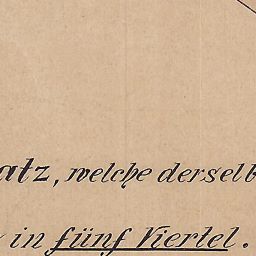 atz, welche derselb
in fünf Viertel.